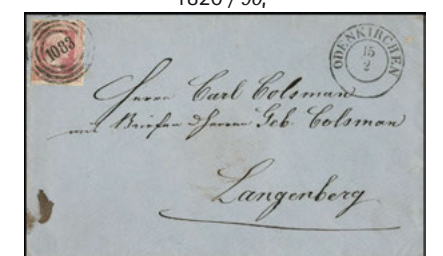 1820 / 50,
1083
ODENKIRCHEN
15
2
Herrn Carl Colsman
Geb. Colsman
Langenberg